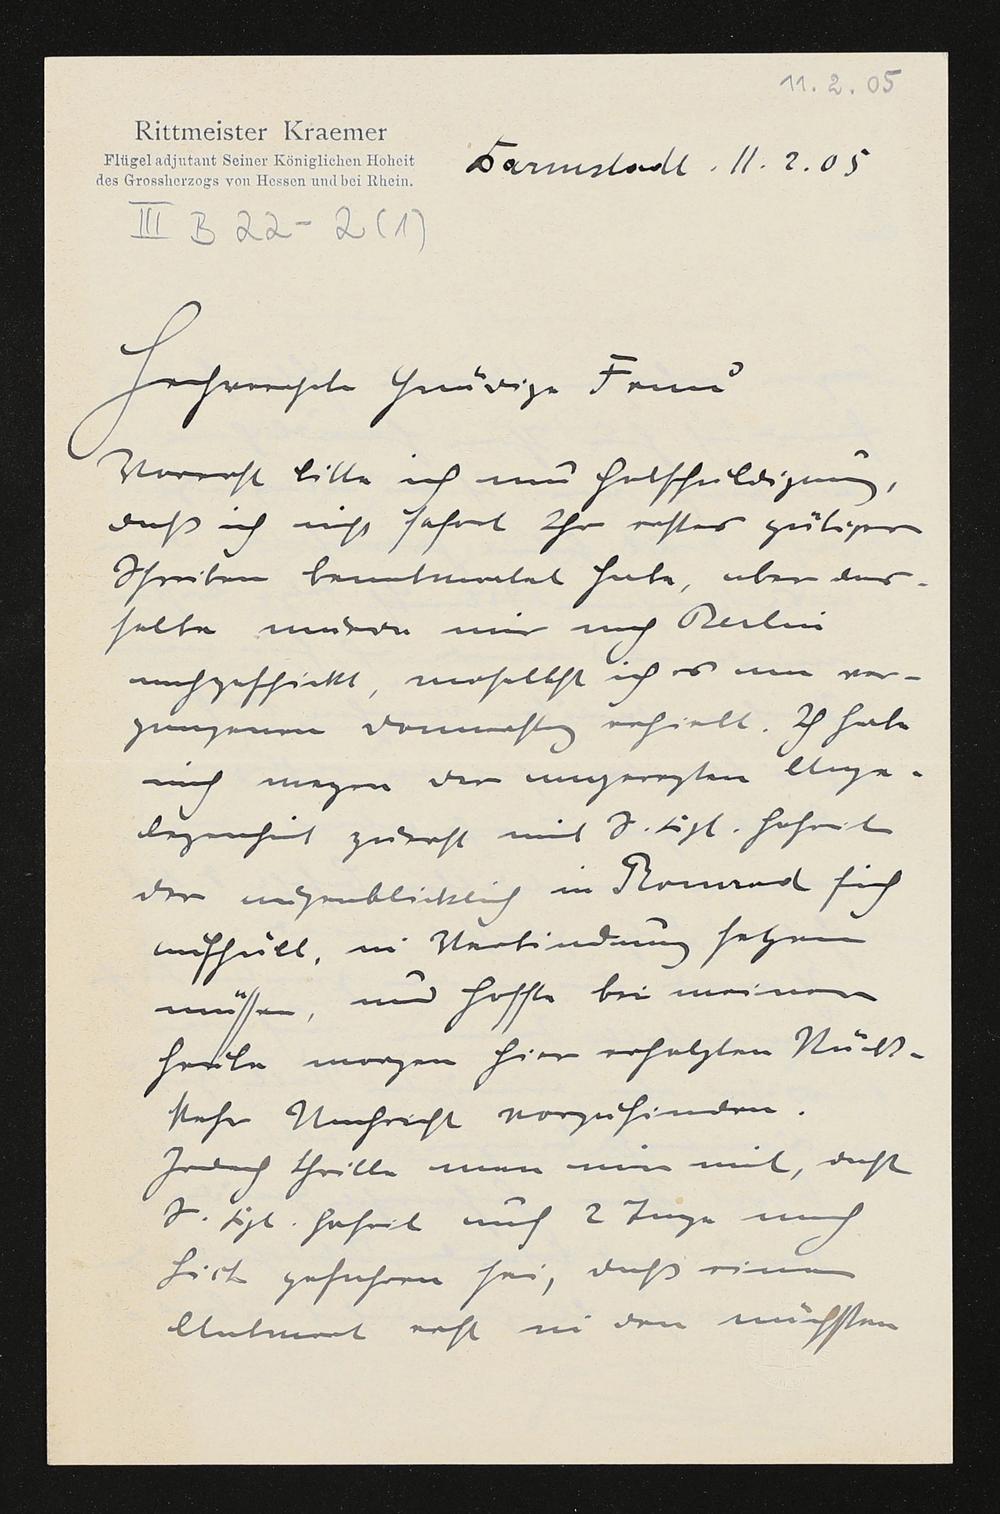 11. 2. 05
Rittmeister Kraemer
Flügeladjutant Seiner Königlichen Hoheit
des Grossherzogs von Hessen und bei Rhein.
Darmstadt. 11. 2. 05
III B 22-2(1)
Hochverehrte Gnädige Frau
Vorerst bitte ich um Entschuldigung,
daß ich nicht sofort Ihr erstes gütiges
Schreiben beantwortet habe, aber das-
selbe wurde mir nach Berlin
nachgeschickt, woselbst ich es am ver-
gangenen Donnerstag erhielt. Ich habe
mich wegen der angeregten Ange-
legenheit zuerst mit S. Kgl. Hoheit
der augenblicklich in Romrod sich
aufhält, in Verbindung setzen
müssen, und hoffte bei meiner
heute morgen hier erfolgten Rück-
kehr Nachricht vorzufinden.
Jedoch theilte man mir mit, daß
S. Kgl. Hoheit auf 2 Tage nach
gefahren sei, daß eine
Antwort erst in den nächsten